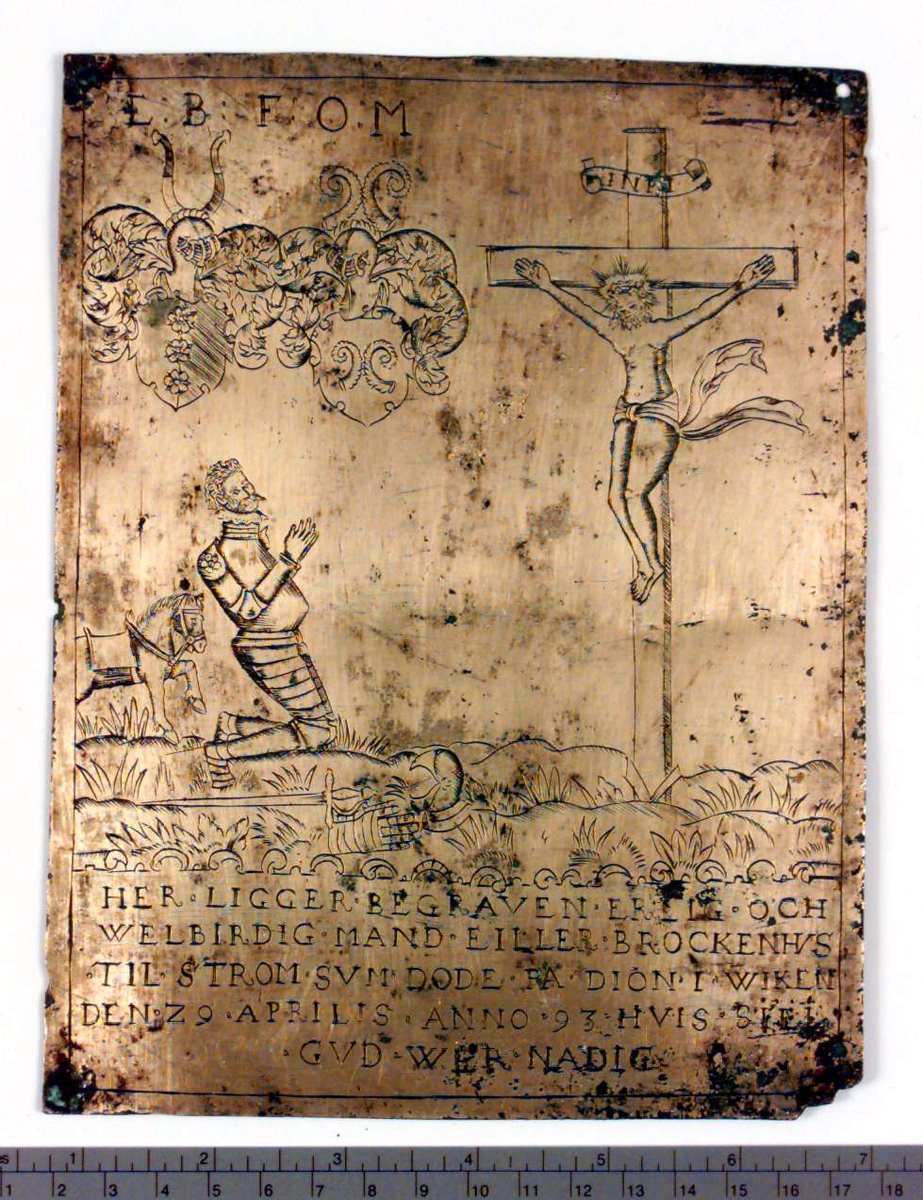 E B · F · O · M
INRI
HER · LIGGER · BEGRAVEN · ERLIG · OCH
WELBIRDIG · MAND · EILLER · BROCKENHVS
· TIL · STROM · SVM · DODE · PA · DION · I · WIKEN
DEN · 29 · APRILIS · ANNO · 93 · HVIS · SIEL
· GVD · WER · NADIG
1 2 3 4 5 6 7
1 2 3 4 5 6 7 8 9 10 11 12 13 14 15 16 17 18